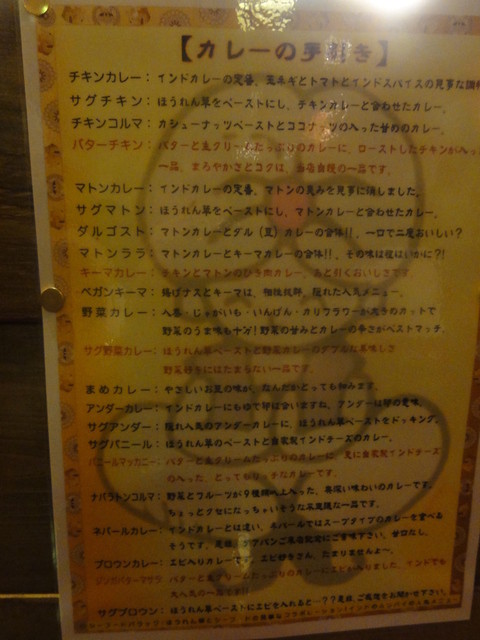 【カレーの手引き】
チキンカレー：インドカレーの定番。玉ネギとトマトとインドスパイスの見事な調和
サグチキン：ほうれん草をペーストにし、チキンカレーと合わせたカレー。
チキンコルマ：カシューナッツペーストとココナッツの入った甘めのカレー。
バターチキン：バターと生クリームたっぷりのカレーに、ローストしたチキンが入っ
一品。まろやかさとコクは、当店自慢の一品です。
マトンカレー：インドカレーの定番。マトンの臭みを見事に消しました。
サグマトン：ほうれん草をペーストにし、マトンカレーと合わせたカレー。
ダルゴスト：マトンカレーとダル（豆）カレーの合体!!、一口で二度おいしい？
マトンララ：マトンカレーとキーマカレーの合体!!、その味は如何に?!
キーマカレー：チキンとマトンのひき肉カレー。あと引くおいしさです。
ベガンキーマ：揚げナスとキーマは、相性抜群。隠れた人気メニュー。
野菜カレー：人参・じゃがいも・いんげん・カリフラワーが大きめカットで
野菜のうま味も十分！野菜の甘みとカレーの辛さがベストマッチ。
サグ野菜カレー：ほうれん草ペーストと野菜カレーのダブルな美味しさ
野菜好きにはたまらない一品です。
まめカレー：やさしいお豆の味が、なんだかとっても和みます。
アンダーカレー：インドカレーにもゆで卵は合いますね。アンダーは卵の意味。
サグアンダー：隠れ人気のアンダーカレーに、ほうれん草ペーストをドッキング。
サグパニール：ほうれん草のペーストと自家製インドチーズのカレー。
パニールマッカニー：バターと生クリームたっぷりのカレーに、更に自家製インドチーズ
の入った、とってもリッチなカレーです。
ナバラトンコルマ：野菜とフルーツが9種類以上入った、奥深い味わいのカレーです。
ちょっとクセになっちゃいそうな不思議な一品です。
ネパールカレー：インドカレーとは違い、ネパールではスープタイプのカレーを食べる
そうです。是非、
プロウンカレー：エビ入りカレーです。エビ好きさん、たまりませんよ〜。
バターと生クリームたっぷりのカレーにエビが入りました。インドでも
大人気の一品です!!
サグプロウン：ほうれん草ペーストにエビを入れると…？？是非、ご賞味をお聞かせ下さい。